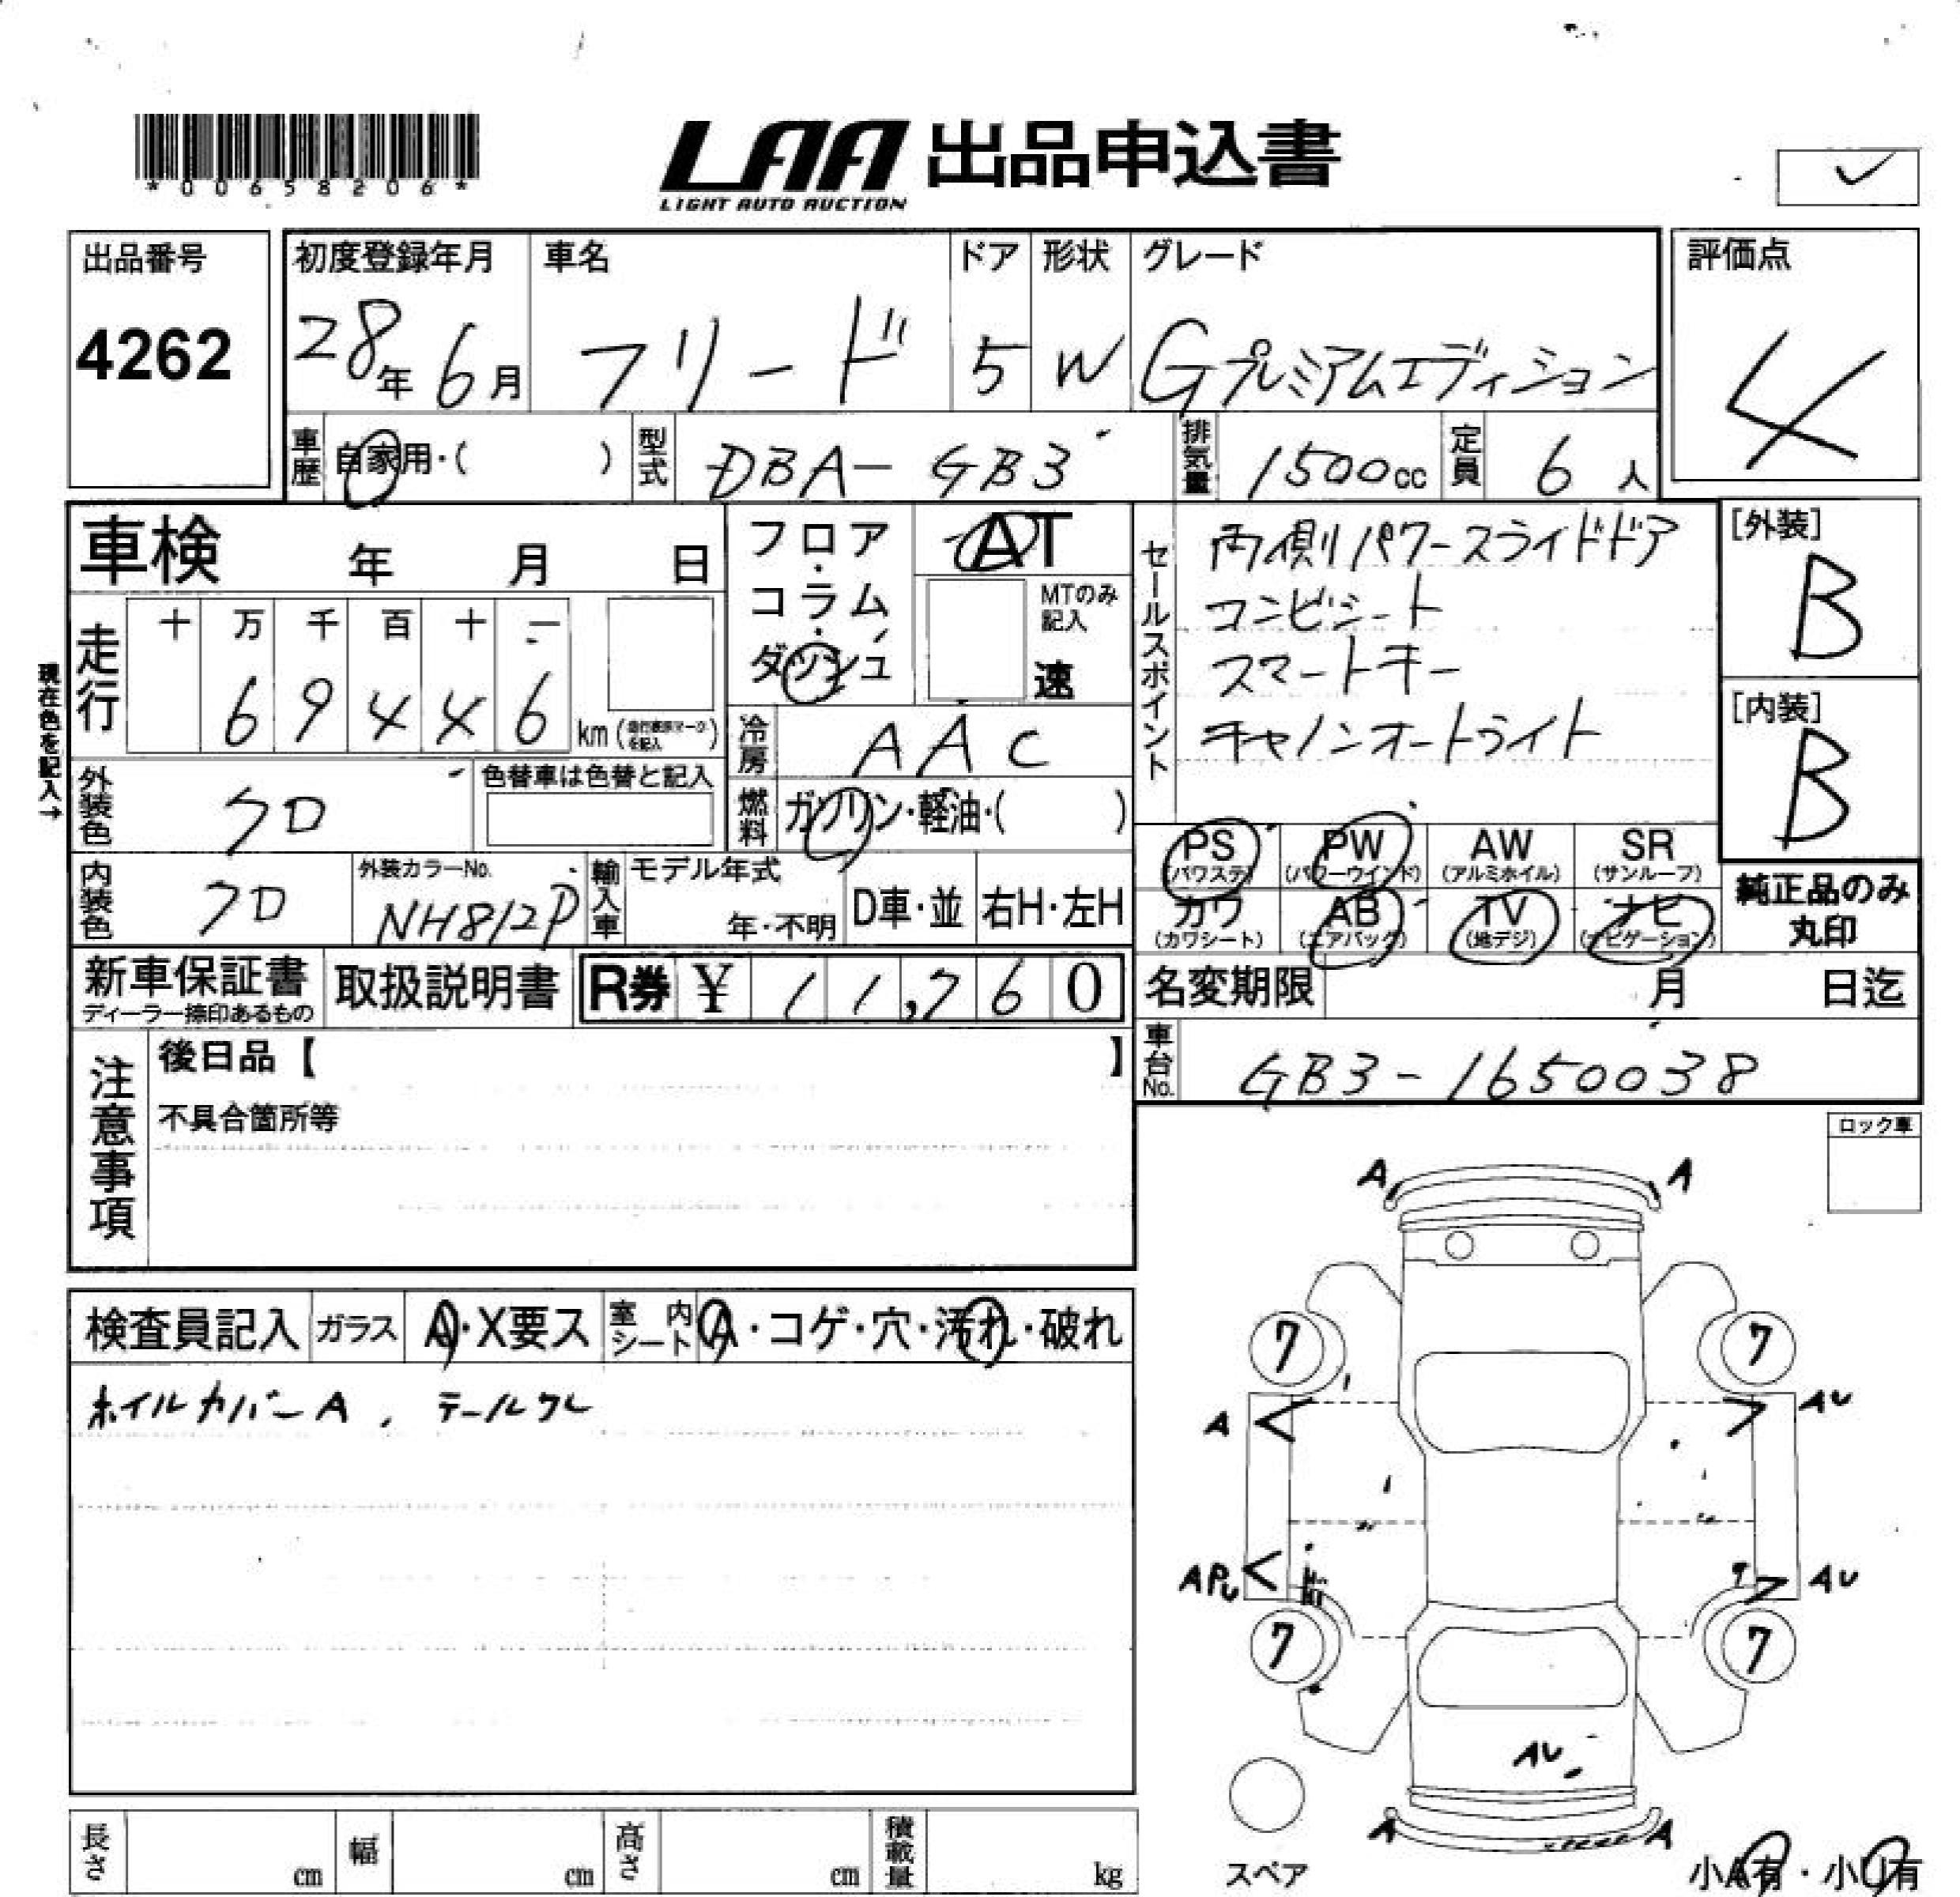 *00658206*
LAA 出品申込書
LIGHT AUTO AUCTION
出品番号
4262
初度登録年月 車名 ドア 形状 グレード
28年6月 フリード 5 W Gプレミアムエディション
評価点
4
車歴 自家用・( ) 型式 DBA-GB3 排気量 1500cc 定員 6人
車検 年 月 日
現在色を記入→
走行 十 万 千 百 十 一
6 9 4 4 6 km
フロア・コラム・ダッシュ
AT
MTのみ記入
速
冷房 AAC
燃料 ガソリン・軽油・( )
セールスポイント
両側パワースライドドア
コンビシート
スマートキー
キャノンオートライト
[外装]
B
[内装]
B
外装色 クロ 色替車は色替と記入
内装色 クロ 外装カラーNo. NH812P
輸入車 モデル年式 年・不明 D車・並 右H・左H
PS (パワステ) PW (パワーウインド) AW (アルミホイル) SR (サンルーフ)
カワ (カワシート) AB (エアバッグ) TV (地デジ) ナビ (ナビゲーション)
純正品のみ丸印
新車保証書 ディーラー捺印あるもの 取扱説明書 R券 ¥ 11,760
名変期限 月 日迄
車台No. GB3-1650038
注意事項
後日品【 】
不具合箇所等
ロック車
検査員記入 ガラス A・X要ス 室内シート A・コゲ・穴・汚れ・破れ
ホイルカバーA, テールワレ
A A
7 7
A AU
APU AU
7 7
AU
A A
スペア
小A有・小U有
長さ cm 幅 cm 高さ cm 積載量 kg